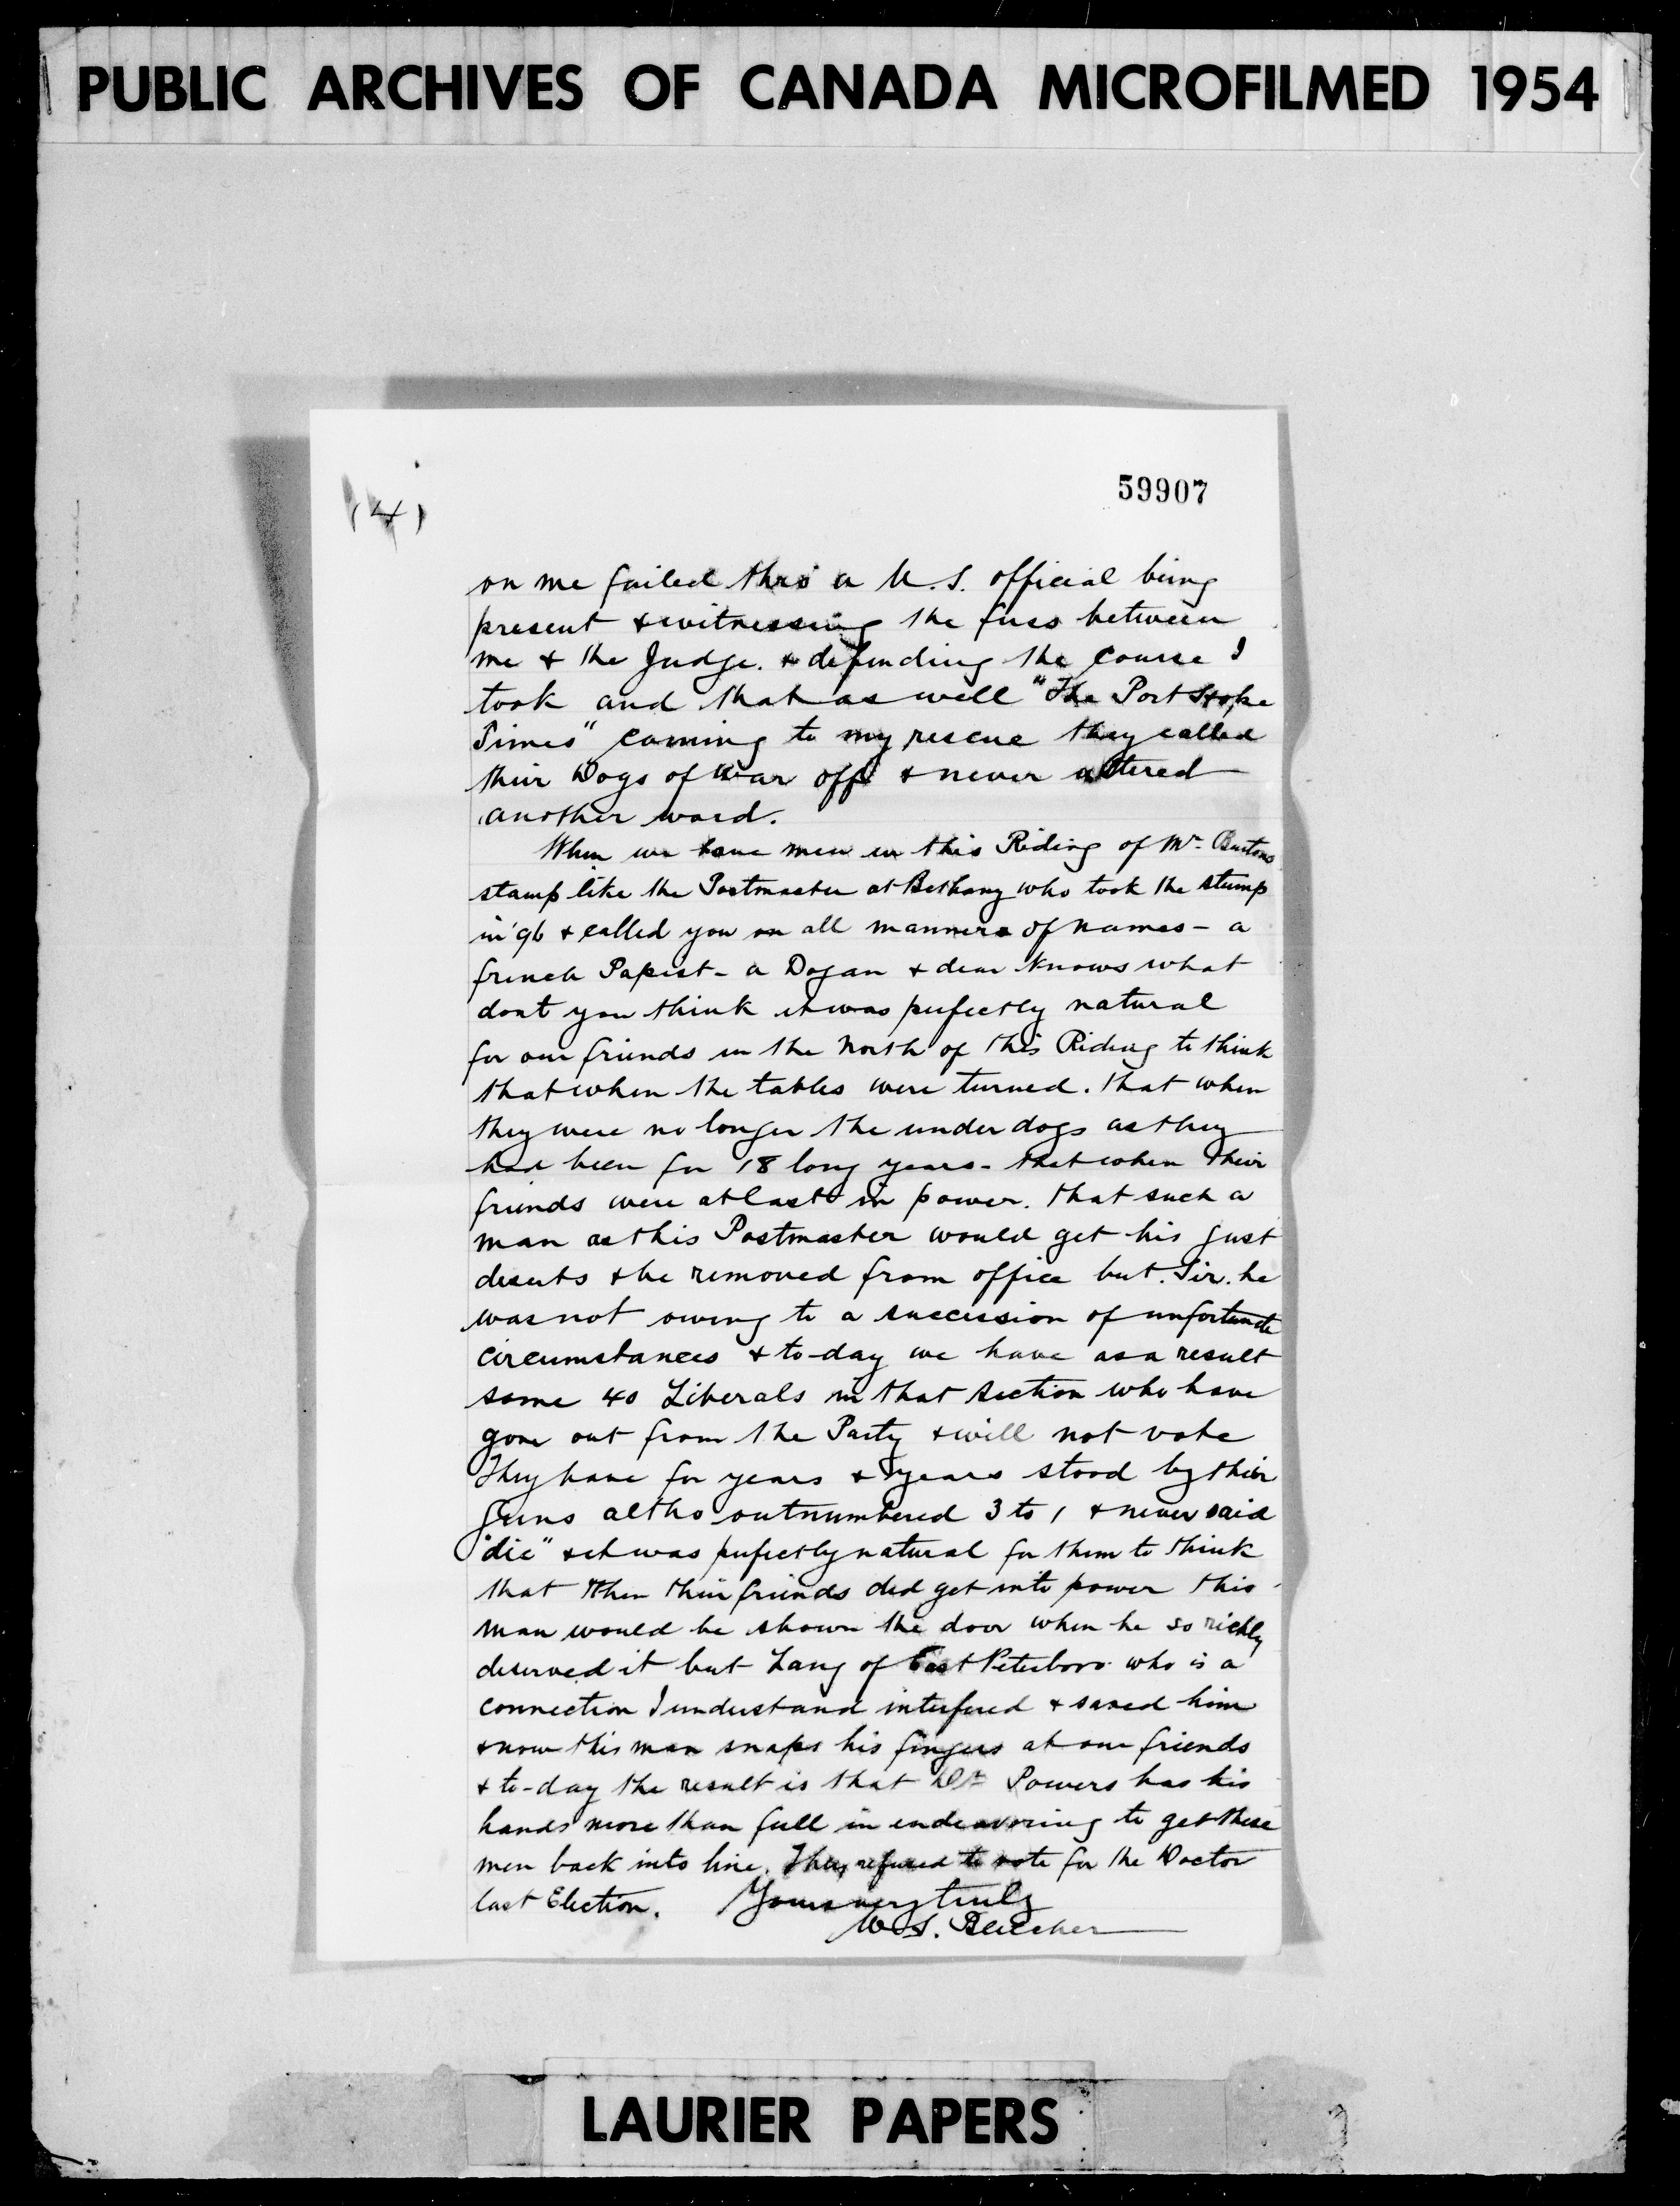 PUBLIC ARCHIVES OF CANADA MICROFILMED 1954
59907
(4)
on me failed thro a U.S. official being
present & witnessing the fuss between
me & the Judge. & defending the course I
took and that as well "The Port Hope
Times" coming to my rescue they called
their Dogs of War off & never uttered
another word.
When we have men in this Riding of Mr. Burtons
stamp like the Postmaster at Bethany who took the stump
in '96 & called you all manners of names - a
french Papist - a Dogan & dear knows what
dont you think it was perfectly natural
for our friends in the North of this Riding to think
that when the tables were turned. that when
they were no longer the under dogs as they
had been for 18 long years - that when their
friends were at last in power. that such a
man as this Postmaster would get his just
deserts & be removed from office but. Sir. he
was not owing to a succession of unfortunate
circumstances & to-day we have as a result
some 40 Liberals in that section who have
gone out from the Party & will not vote
They have for years & years stood by their
guns altho outnumbered 3 to 1 & never said
"die" & it was perfectly natural for them to think
that when their friends did get into power this
man would be shown the door when he so richly
deserved it but Lang of East Peterboro who is a
connection I understand interfered & saved him
& now this man snaps his fingers at our friends
& to-day the result is that Dr. Powers has his
hands more than full in endeavoring to get these
men back into line. They refused to vote for the Doctor
last Election. Yours very truly
W S. Beecher
LAURIER PAPERS